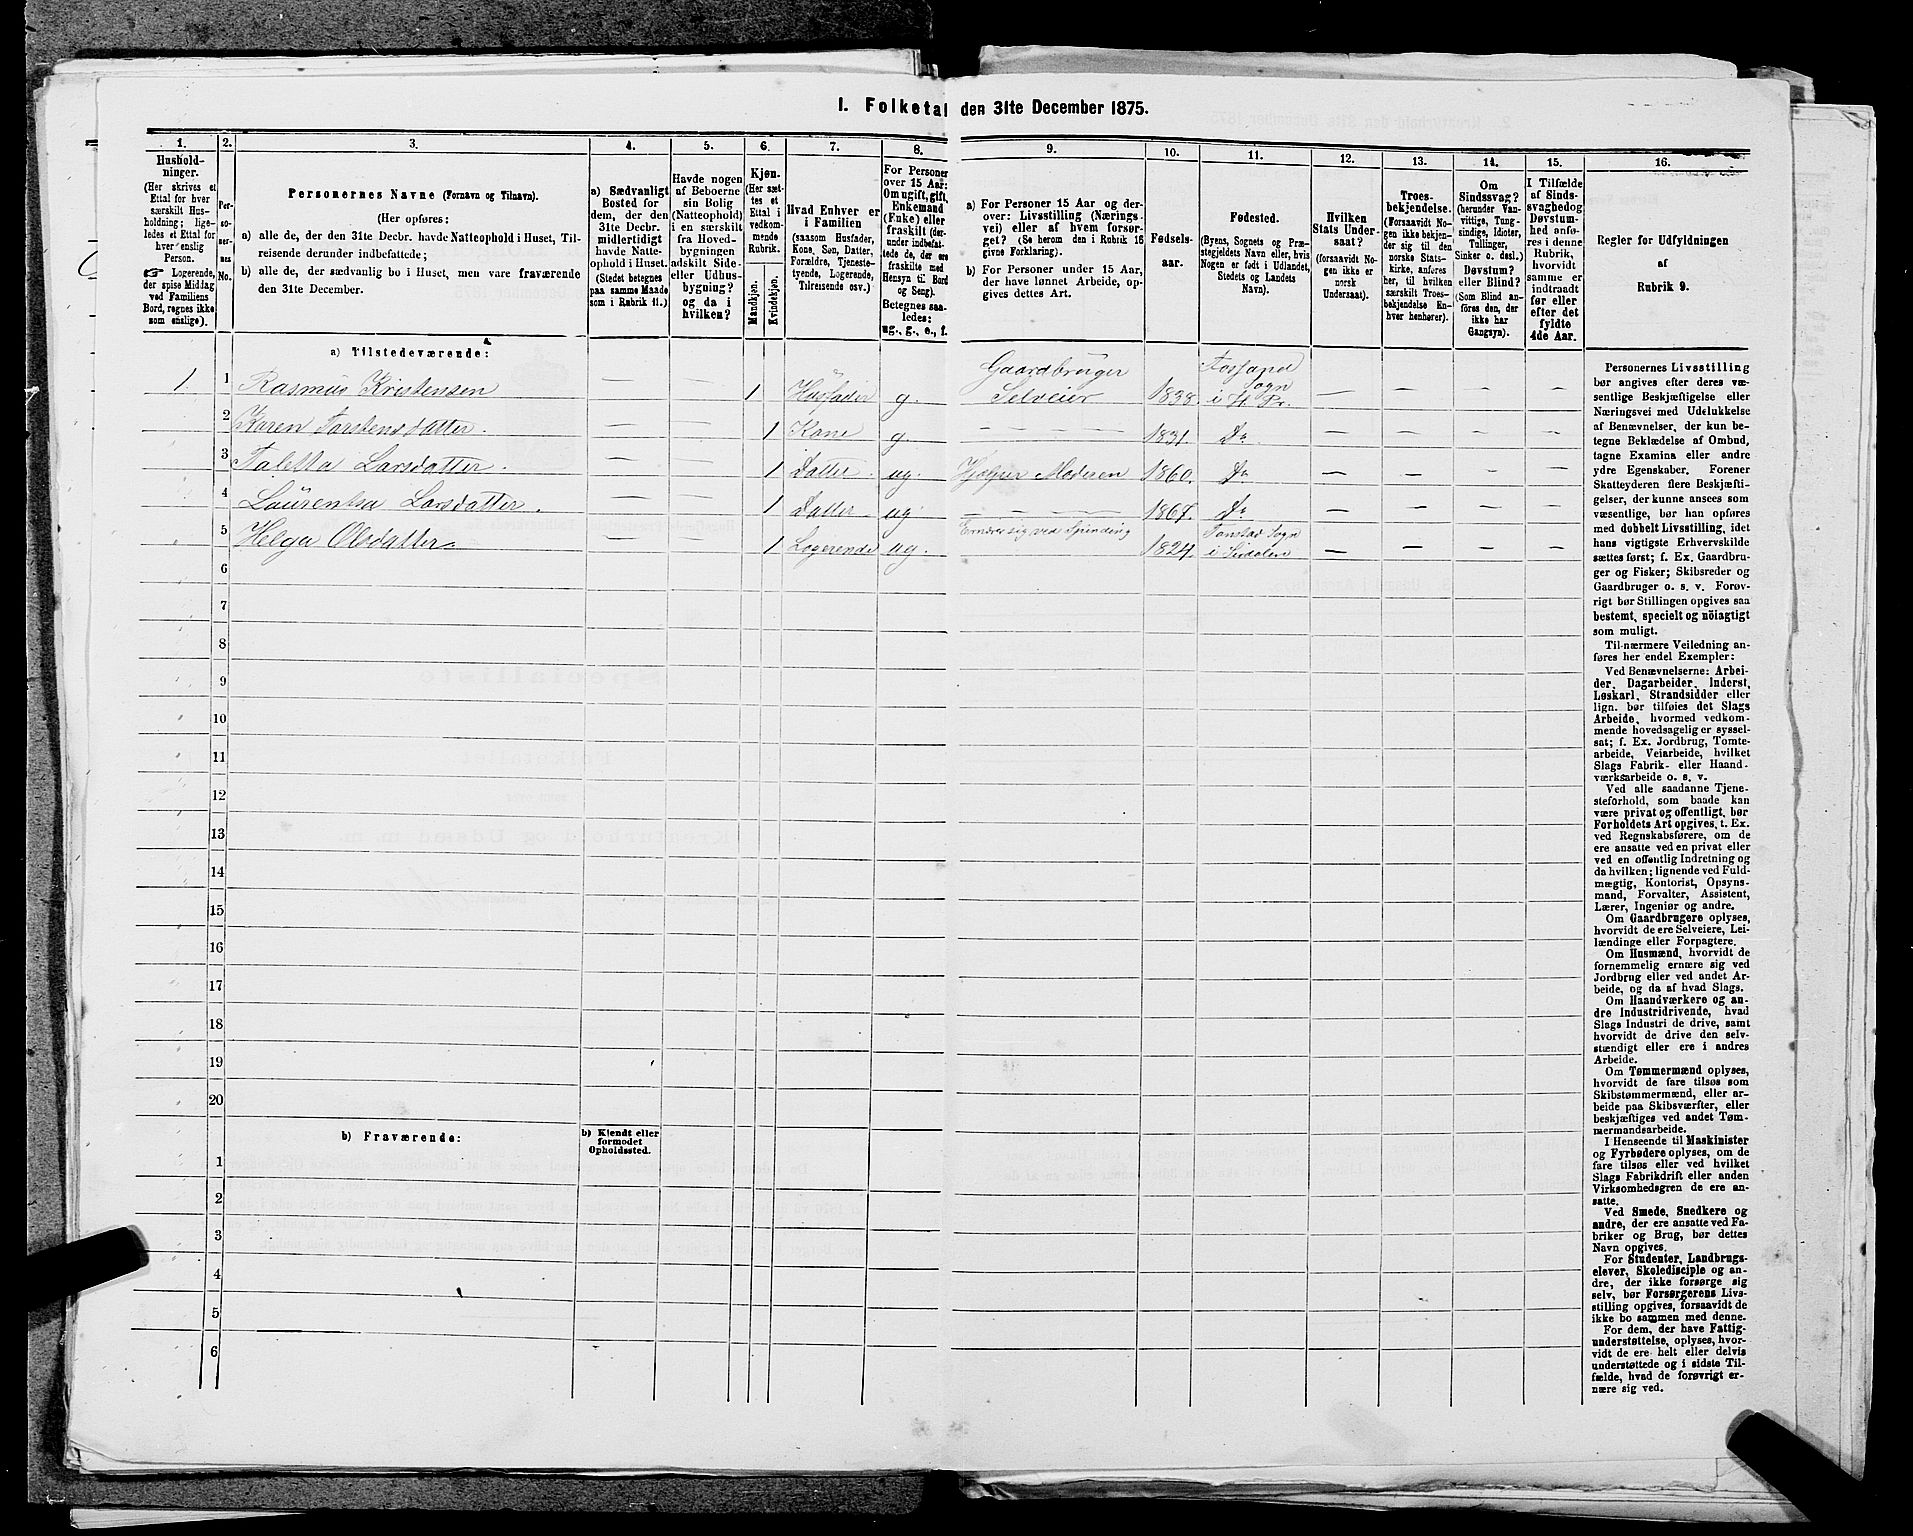 I. Folketal den 31te December 1875.
1.
2.
3.
4.
5.
6.
7.
8.
9.
10.
11.
12.
13.
14.
15.
16.
Hushold-
ninger.
(Her skrives et
Ettal for hver
særskilt Hus-
holdning; lige-
ledes et Ettal for
hver enslig
Person.
☞ Logerende,
der spise Middag
ved Familiens
Bord, regnes ikke
som enslige).
Per-
so-
ner-
nes
No.
Personernes Navne (Fornavn og Tilnavn).
(Her opføres:
a) alle de, der den 31te Decbr. havde Natteophold i Huset, Til-
reisende derunder indbefattede;
b) alle de, der sædvanlig bo i Huset, men vare fraværende
den 31te December.
a) Sædvanligt
Bosted for
dem, der den
31te Decbr.
midlertidigt
havde Natte-
ophold i Huset.
(Stedet betegnes
paa samme Maade
som i Rubrik 11.)
Havde nogen
af Beboerne
sin Bolig
(Natteophold)
i en særskilt
fra Hoved-
bygningen
adskilt Side-
eller Udhus-
bygning?
og da i
hvilken?
Kjøn.
(Her sæt-
tes et
Ettal i
vedkom-
mende
Rubrik.
Mandkjøn.
Kvindekjøn.
Hvad Enhver er
i Familien
(saasom Husfader,
Kone, Søn, Datter,
Forældre, Tjeneste-
tyende, Logerende,
Tilreisende osv.)
For Personer
over 15 Aar:
Om ugift, gift,
Enkemand
(Enke) eller
fraskilt (der-
under indbefat-
tede de, der ere
fraskilte med
Hensyn til Bord
og Seng).
Betegnes saa-
ledes:
ug., g., e., f.
a) For Personer 15 Aar og der-
over: Livsstilling (Nærings-
vei) eller af hvem forsør-
get? (Se herom den i Rubrik 16
givne Forklaring).
b) For Personer under 15 Aar,
der have lønnet Arbeide, op-
gives dettes Art.
Fødsels-
aar.
Fødested.
(Byens, Sognets og Præ-
stegjeldets Navn eller, hvis
Nogen er født i Udlandet,
Stedets og Landets
Navn).
Hvilken
Stats Under-
saat?
(forsaavidt No-
gen ikke er
norsk
Undersaat).
Troes-
bekjendelse.
(Forsaavidt No-
gen ikke bekjen-
der sig til den
norske Stats-
kirke, anføres
her, til hvilken
særskilt Troes-
bekjendelse En-
hver henhører).
Om
Sindssvag?
(herunder Van-
vittige, Tung-
sindige, Idioter,
Tullinger,
Sinker o. desl.)
Døvstum?
eller Blind?
(Som Blind an-
føres den, der
ikke har
Gangsyn).
I Tilfælde
af Sinds-
svaghed og
Døvstum-
hed anfø-
res i denne
Rubrik,
hvorvidt
samme er
indtraadt
før eller
efter det
fyldte
4de Aar.
Regler for Udfyldningen
af
Rubrik 9.
a) Tilstedeværende:
1. 1 Rasmus Kristensen — — 1 Husfader g. Gaardbruger Selveier 1838. Fossaped Sogn i H. Pr. — — — —
2 Karen Torstensdatter. — — 1 Kone g. — — — — 1831. Do — — — —
3 Taletta Larsdatter. — — 1 Datter. ug. Hjelper Moderen 1860. Do — — — —
4 Laurentsa Larsdatter — — 1 Datter ug. — — — — 1867. Do — — — —
5 Helga Olsdatter — — 1 Logerende ug. Ernærer sig ved Spinding 1824. Tonstad Sogn i Sirdalen — — — —
6
7
8
9
10
11
12
13
14
15
16
17
18
19
20
b) Fraværende:
b) Kjendt eller
formodet
Opholdssted.
1
2
3
4
5
6
Personernes Livsstilling
bør angives efter deres væ-
sentlige Beskjæftigelse eller
Næringsvei med Udelukkelse
af Benævnelser, der kun be-
tegne Beklædelse af Ombud,
tagne Examina eller andre
ydre Egenskaber. Forener
Skatteyderen flere Beskjæfti-
gelser, der kunne ansees som
væsentlige, bør han opføres
med dobbelt Livsstilling, idet
hans vigtigste Erhvervskilde
sættes først; f. Ex. Gaardbru-
ger og Fisker; Skibsreder og
Gaardbruger o. s. v. Forøv-
rigt bør Stillingen opgives saa
bestemt, specielt og nöiagtigt
som muligt.
Til nærmere Veiledning an-
føres her endel Exempler:
Ved Benævnelserne: Arbei-
der, Dagarbeider, Inderst,
Løskarl, Strandsidder eller
lign. bør tilføies det Slags
Arbeide, hvormed vedkom-
mende hovedsagelig er syssel-
sat; f. Ex. Jordbrug, Tomte-
arbeide, Veiarbeide, hvilket
Slags Fabrik- eller Haand-
værksarbeide o. s. v.
Ved alle saadanne Tjene-
steforhold, som baade kan
være privat og offentligt, bør
Forholdets Art opgives, t. Ex.
ved Regnskabsførere, om de
ere ansatte ved en privat eller
ved en offentlig Indretning og
da hvilken; lignende ved Fuld-
mægtig, Kontorist, Opsyns-
mand, Forvalter, Assistent,
Lærer, Ingeniør og andre.
Om Gaardbrugere oplyses,
hvorvidt de ere Selveiere, Lei-
lændinge eller Forpagtere.
Om Husmænd, hvorvidt de
fornemmelig ernære sig ved
Jordbrug eller ved andet Ar-
beide, og da af hvad Slags.
Om Haandværkere og an-
dre Industridrivende, hvad
Slags Industri de drive, samt
hvorvidt de drive den selv-
stændigt eller ere i andres
Arbeide.
Om Tømmermænd oplyses,
hvorvidt de fare tilsøs som
Skibstømmermænd, eller ar-
beide paa Skibsværfter, eller
beskjæftiges ved andet Tøm-
mermandsarbeide.
I Henseende til Maskinister
og Fyrbødere oplyses, om de
fare tilsøs eller ved hvilket
Slags Fabrikdrift eller anden
Virksomhedsgren de ere an-
satte.
Ved Smede, Snedkere og
andre, der ere ansatte ved Fa-
briker og Brug, bør dettes
Navn opgives.
For Studenter, Landbrugs-
elever, Skoledisciple og an-
dre, der ikke forsørge sig
selv, bør Forsørgerens Livs-
stilling opgives, forsaavidt de
ikke bo sammen med denne.
For dem, der have Fattig-
understøttelse, oplyses, hvor-
vidt de ere helt eller delvis
understøttede og i sidste Til-
fælde, hvad de forøvrigt er-
nære sig ved.